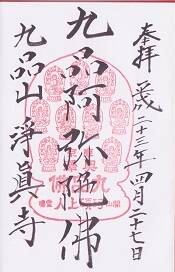 奉拝 平成二十三年四月二十七日
九品阿弥陀佛
九品山 淨眞寺